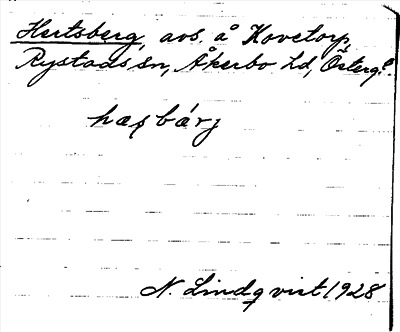 Hertsberg, avs. å Kovetorp,
Rystads sn, Åkerbo hd, Österg.
hæʂbárj
N. Lindqvist 1928